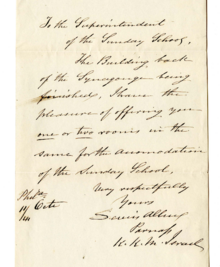 To the Superintendent
of the Sunday School,
The Building back
of the Synagogue being
finished, I have the
pleasure of offering you
one or two rooms in the
same for the accomodation
of the Sunday School,
Very respectfully
Yours
Lewis Allen
Parnas
K. K. M. Israel